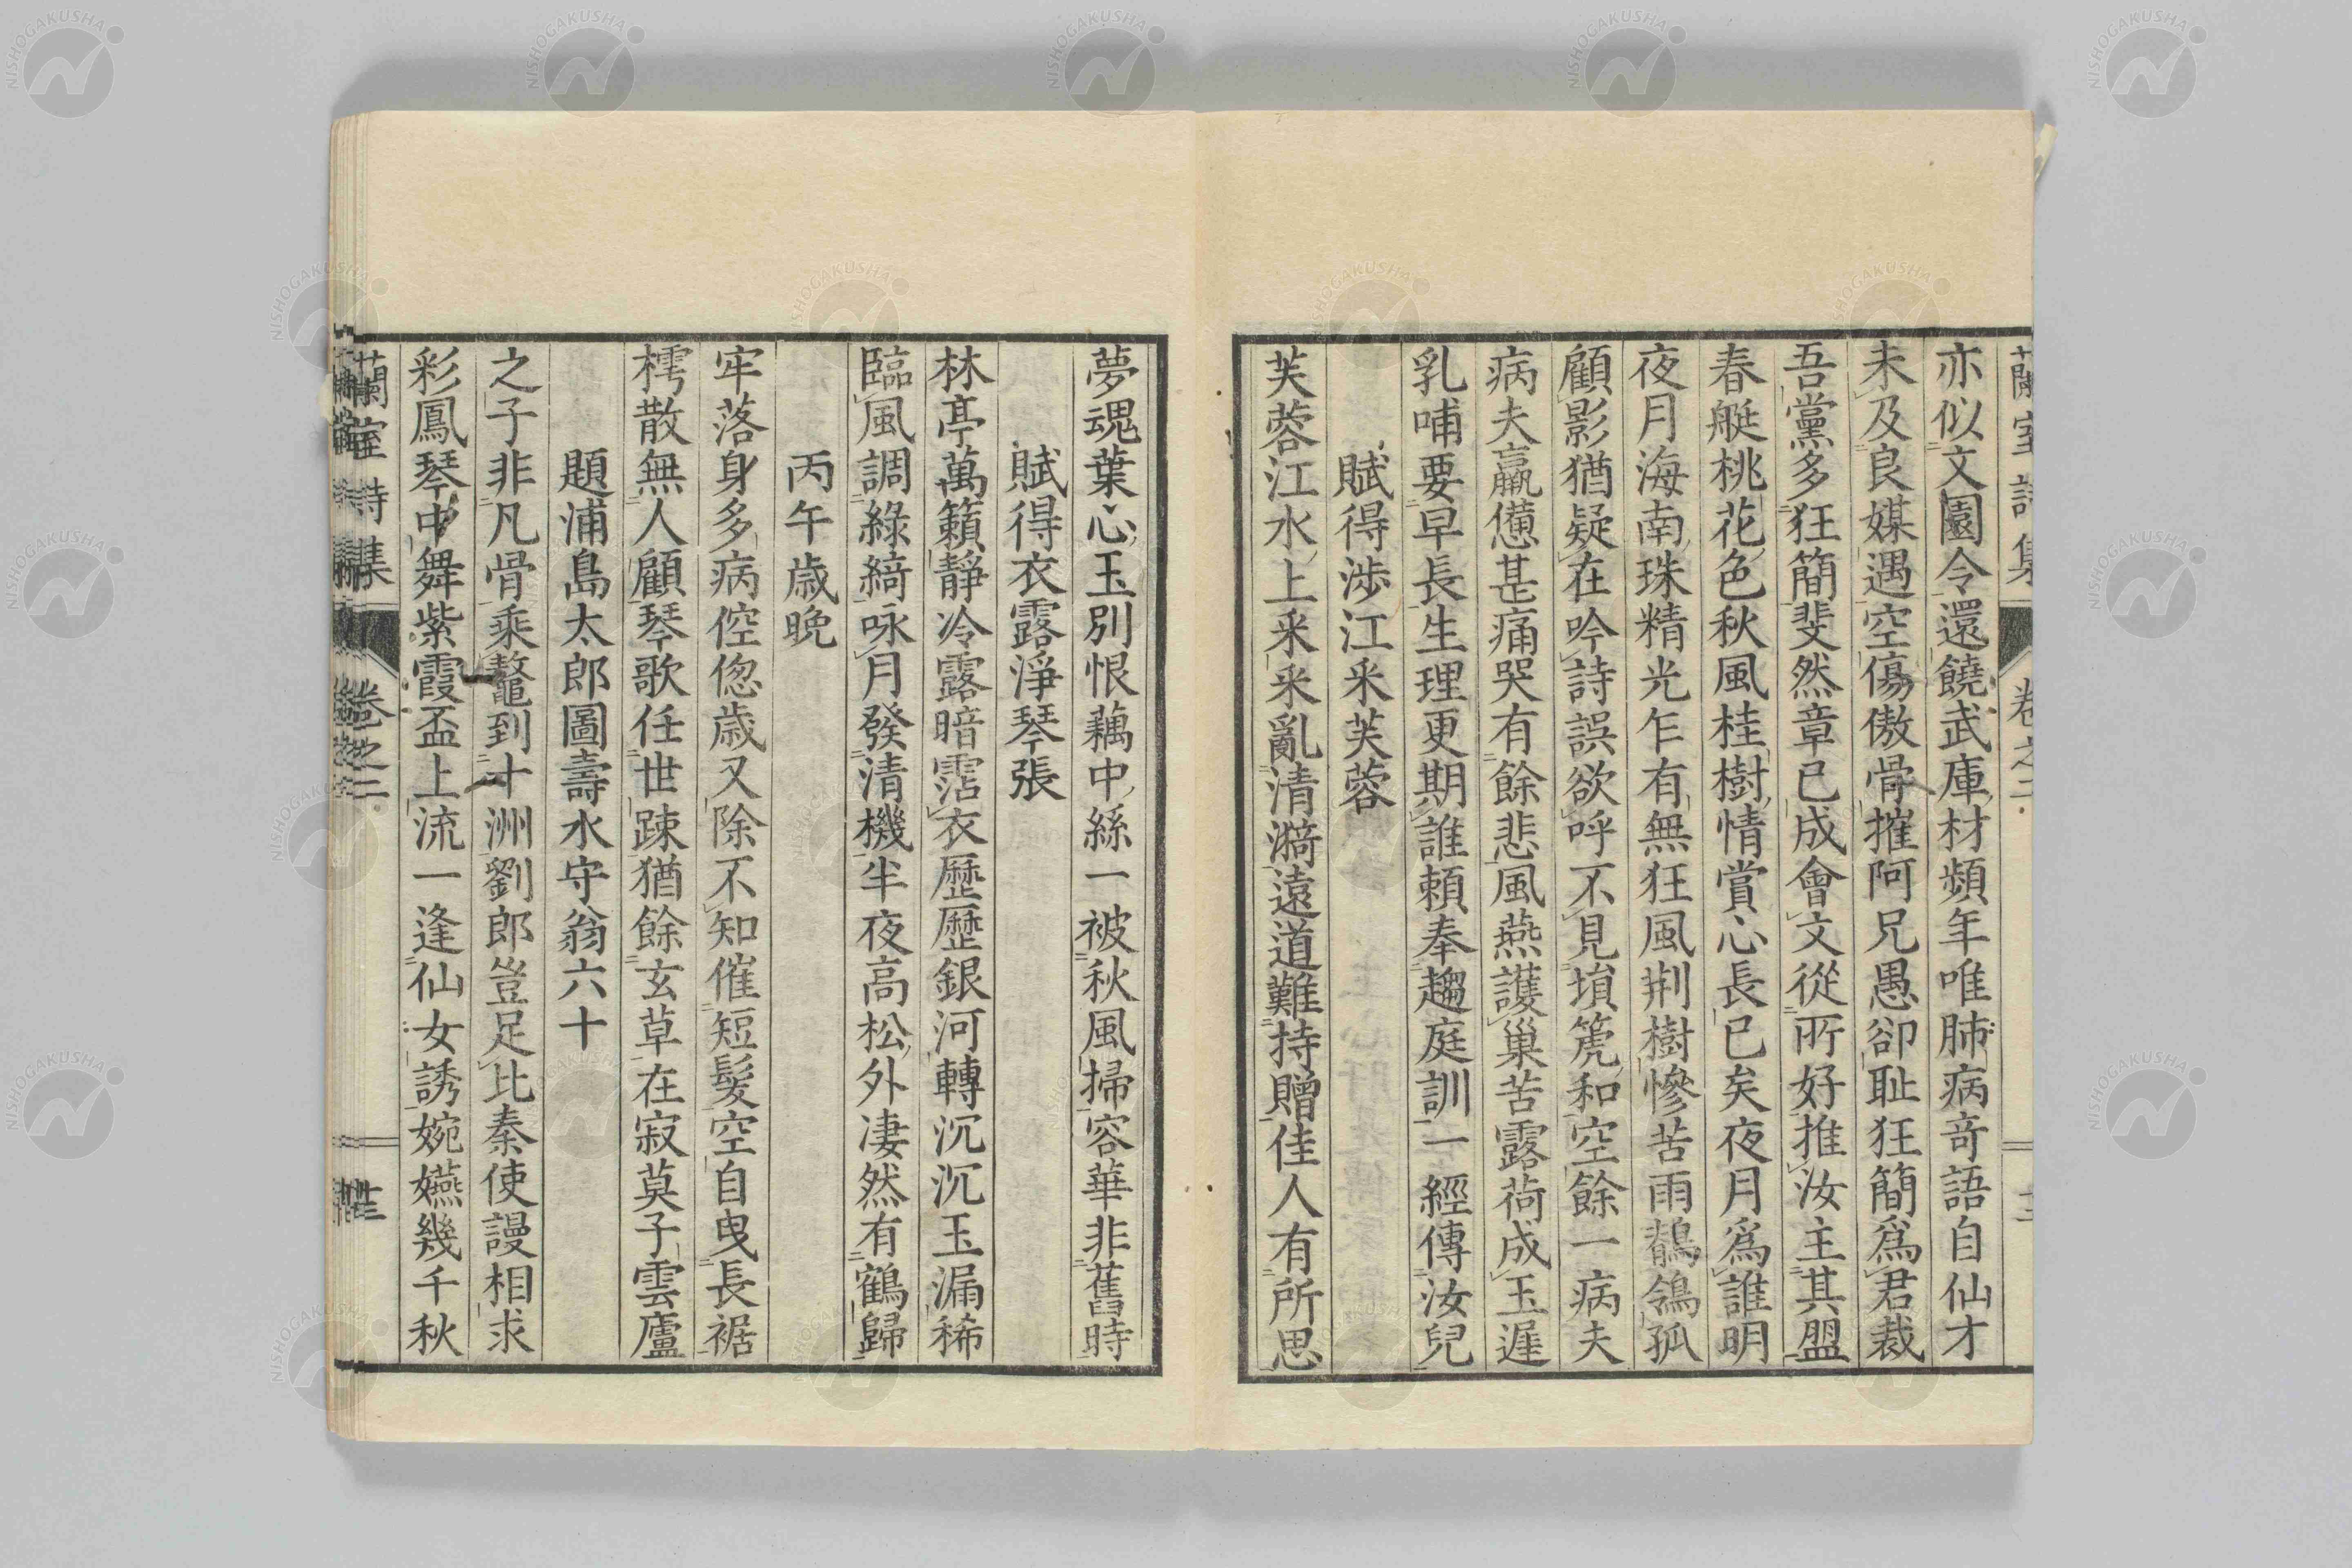 蘭室詩集 卷之二
亦似文園令還饒武庫材頻年唯肺病奇語自仙才
未及良媒遇空傷傲骨摧阿兄愚卻耻狂簡爲君裁
吾黨多狂簡斐然章已成會文從所好推汝主其盟
春艇桃花色秋風桂樹情賞心長已矣夜月爲誰明
夜月海南珠精光乍有無狂風荆樹慘苦雨鶺鴒孤
顧影猶疑在吟詩誤欲呼不見塤箎和空餘一病夫
病夫羸憊甚痛哭有餘悲風燕護巢苦露荷成玉遲
乳哺要早長生理更期誰頼奉趨庭訓一經傳汝兒
賦得渉江采芙蓉
芙蓉江水上采采亂清漪遠道難持贈佳人有所思
夢魂葉心玉別恨藕中絲一被秋風掃容華非舊時
賦得衣露淨琴張
林亭萬籟靜冷露暗霑衣歴歴銀河轉沉沉玉漏稀
臨風調綠綺咏月發清機半夜高松外凄然有鶴歸
丙午歲晩
牢落身多病倥偬歲又除不知催短髪空自曳長裾
樗散無人顧琴歌任世踈猶餘玄草在寂莫子雲廬
題浦島太郎圖壽水守翁六十
之子非凡骨乘鼇到十洲劉郎豈足比秦使謾相求
彩鳳琴中舞紫霞盃上流一逢仙女誘婉嬿幾千秋
蘭室詩集 卷之二
NISHOGAKUSHA